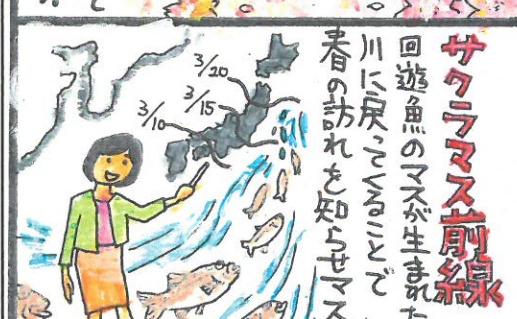 サクラマス前線
回遊魚のマスが生まれた
川に戻ってくることで
春の訪れを知らせマス
3/20
3/15
3/10